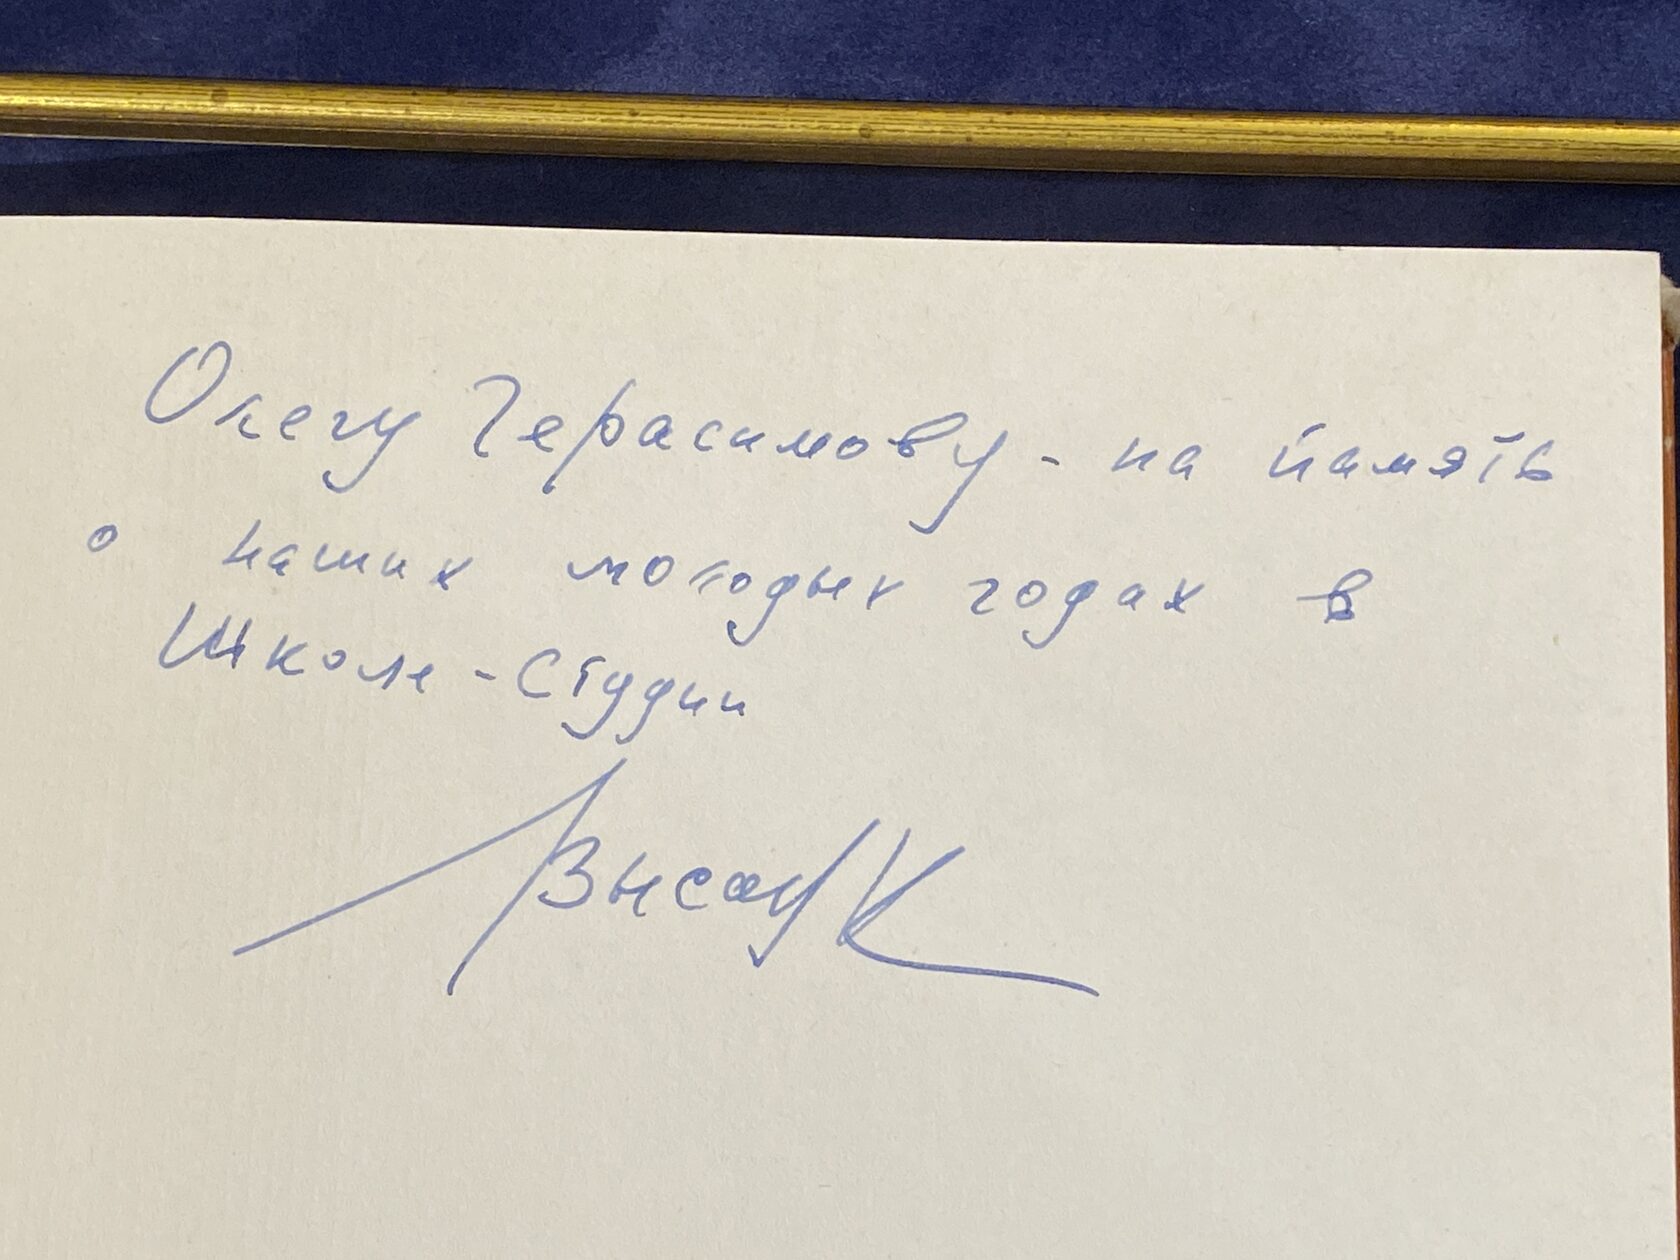 Олегу Герасимову - на память
о наших молодых годах в
Школе - Студии